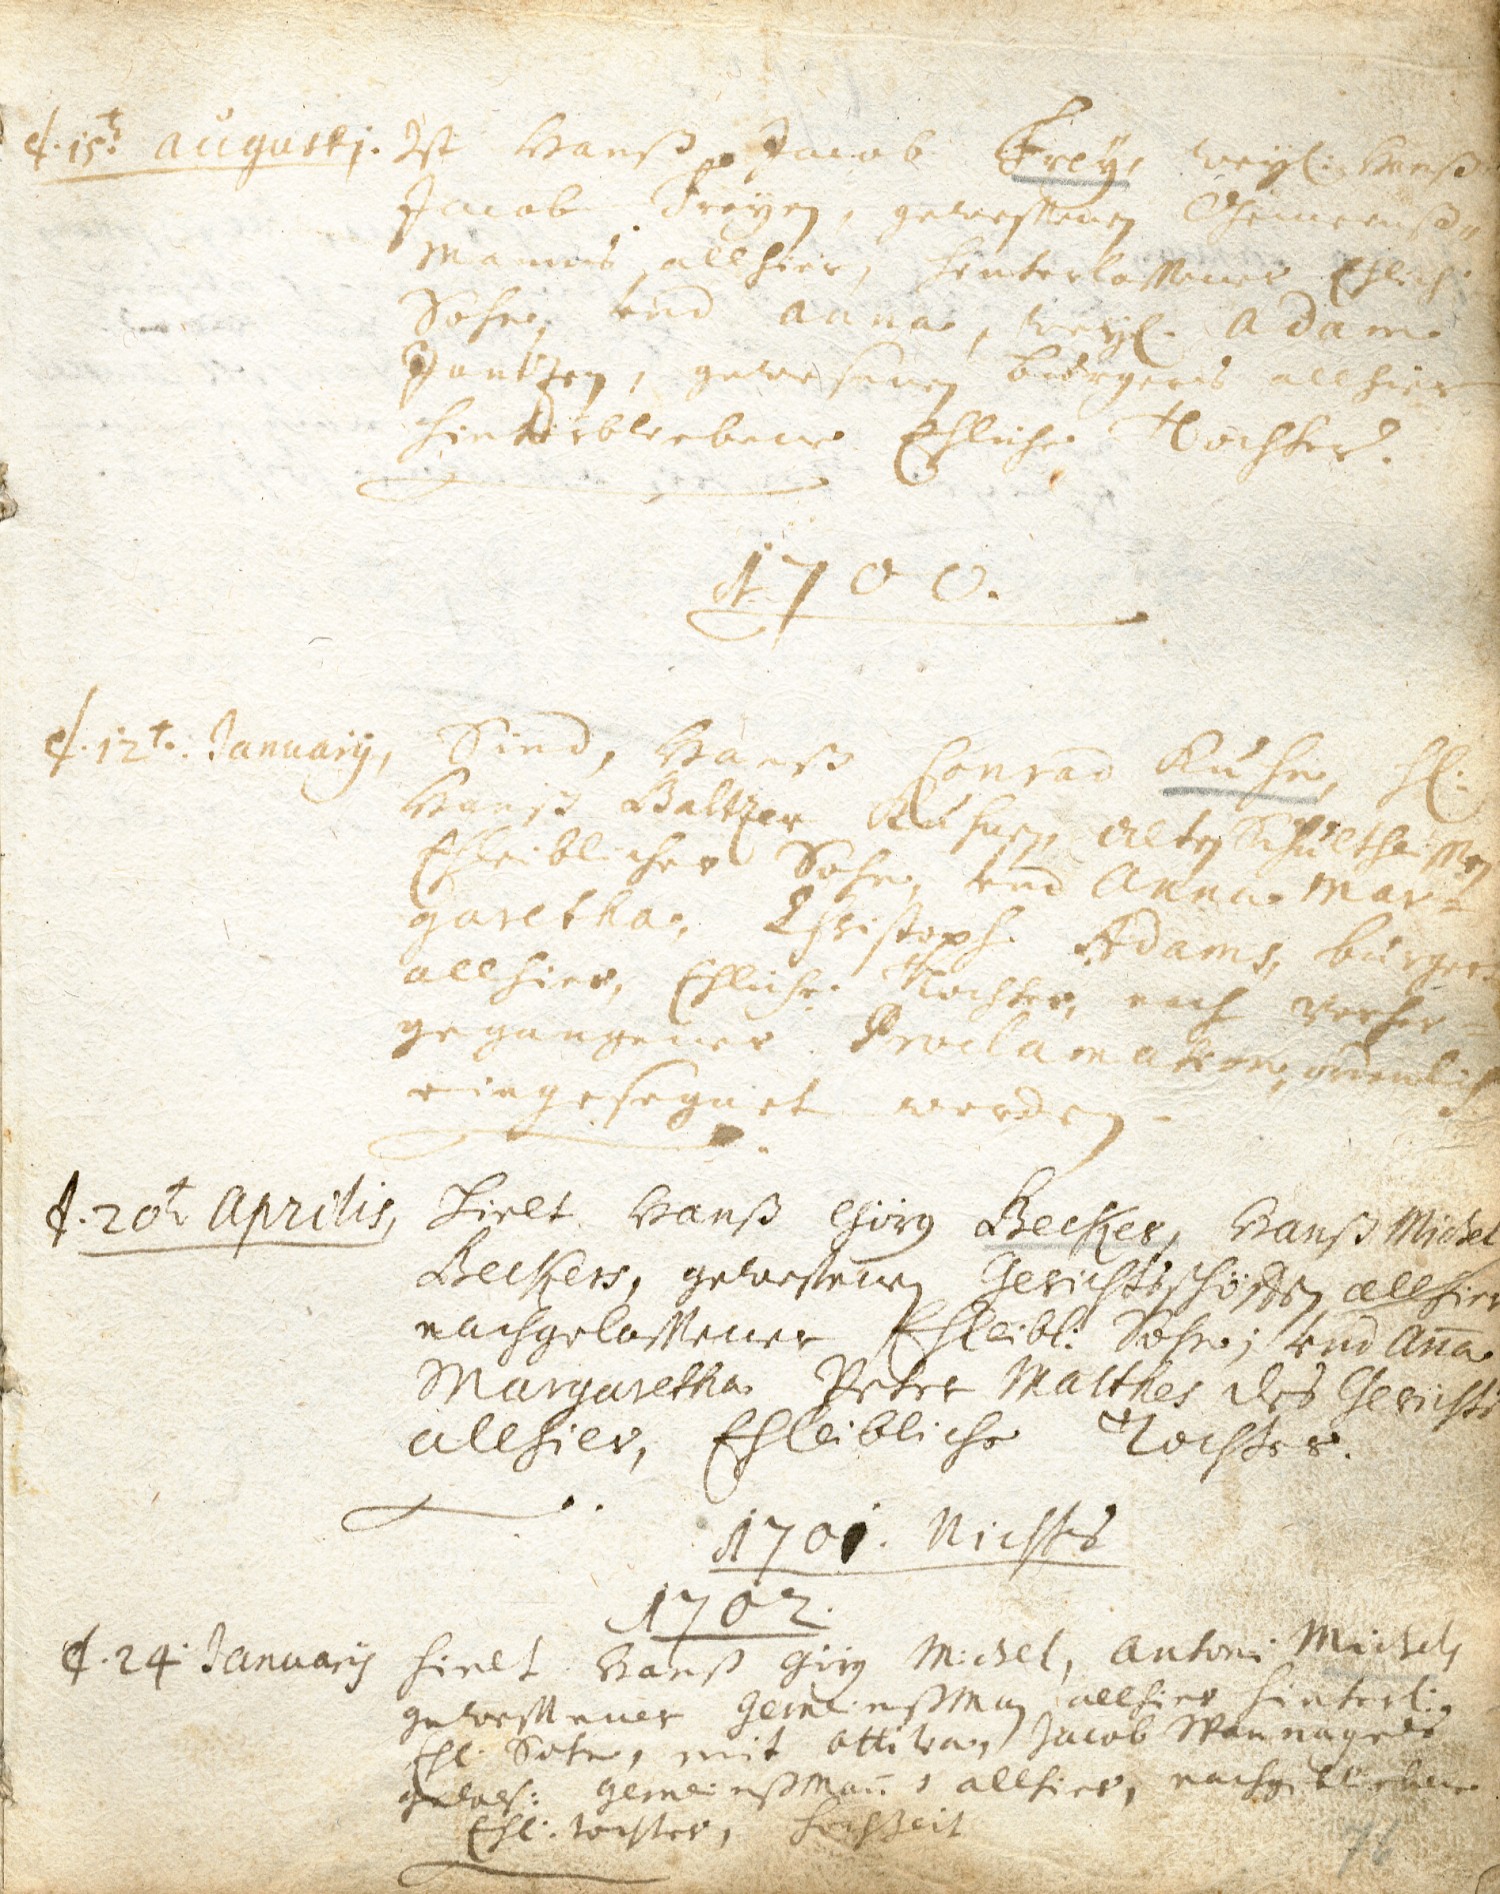 d. 15t. Augusti. Ist Hanß Jacob Frey, weyl. Hanß
Jacob Freyen, gewessenen Gemeinß-
Manns allhier, hinterlassener Ehlich:
Sohn, und Anna, weyl. Adam
gewesenen Burgers allhier
hinterbliebene Ehliche Tochter.
1700.
d. 12t. January, Sind, Hanß Conrad Kuhn, H:
Hanß Baltzer Kuhnen, alten Schultheissen
Ehleiblicher Sohn, und Anna Mar-
garetha, Christoph Adams, burgers
allhier, Ehliche Tochter, nach vorher-
gegangener Proclamation, ordenlich
eingesegnet worden.
d. 20t Aprilis, Hielt Hanß Görg Becker, Hanß Michel
Beckers, gewessenen Gerichtsschöffen allhier
nachgelassener Ehleibl: Sohn, und Aña
Margaretha Peter Matthes des Gerichts
allhier, Ehleibliche Tochter.
1701. Nichts
1702.
d. 24. January hielt Hanß Görg Michel, Antoni Michels
gewessener Gemeinßman allhier hinterl:
Ehl. Sohn, mit Ottilia, Jacob Wannagels
gewes: Gemeinßmañs allhier, nachgebliebene
Ehl. tochter, Hochzeit
76